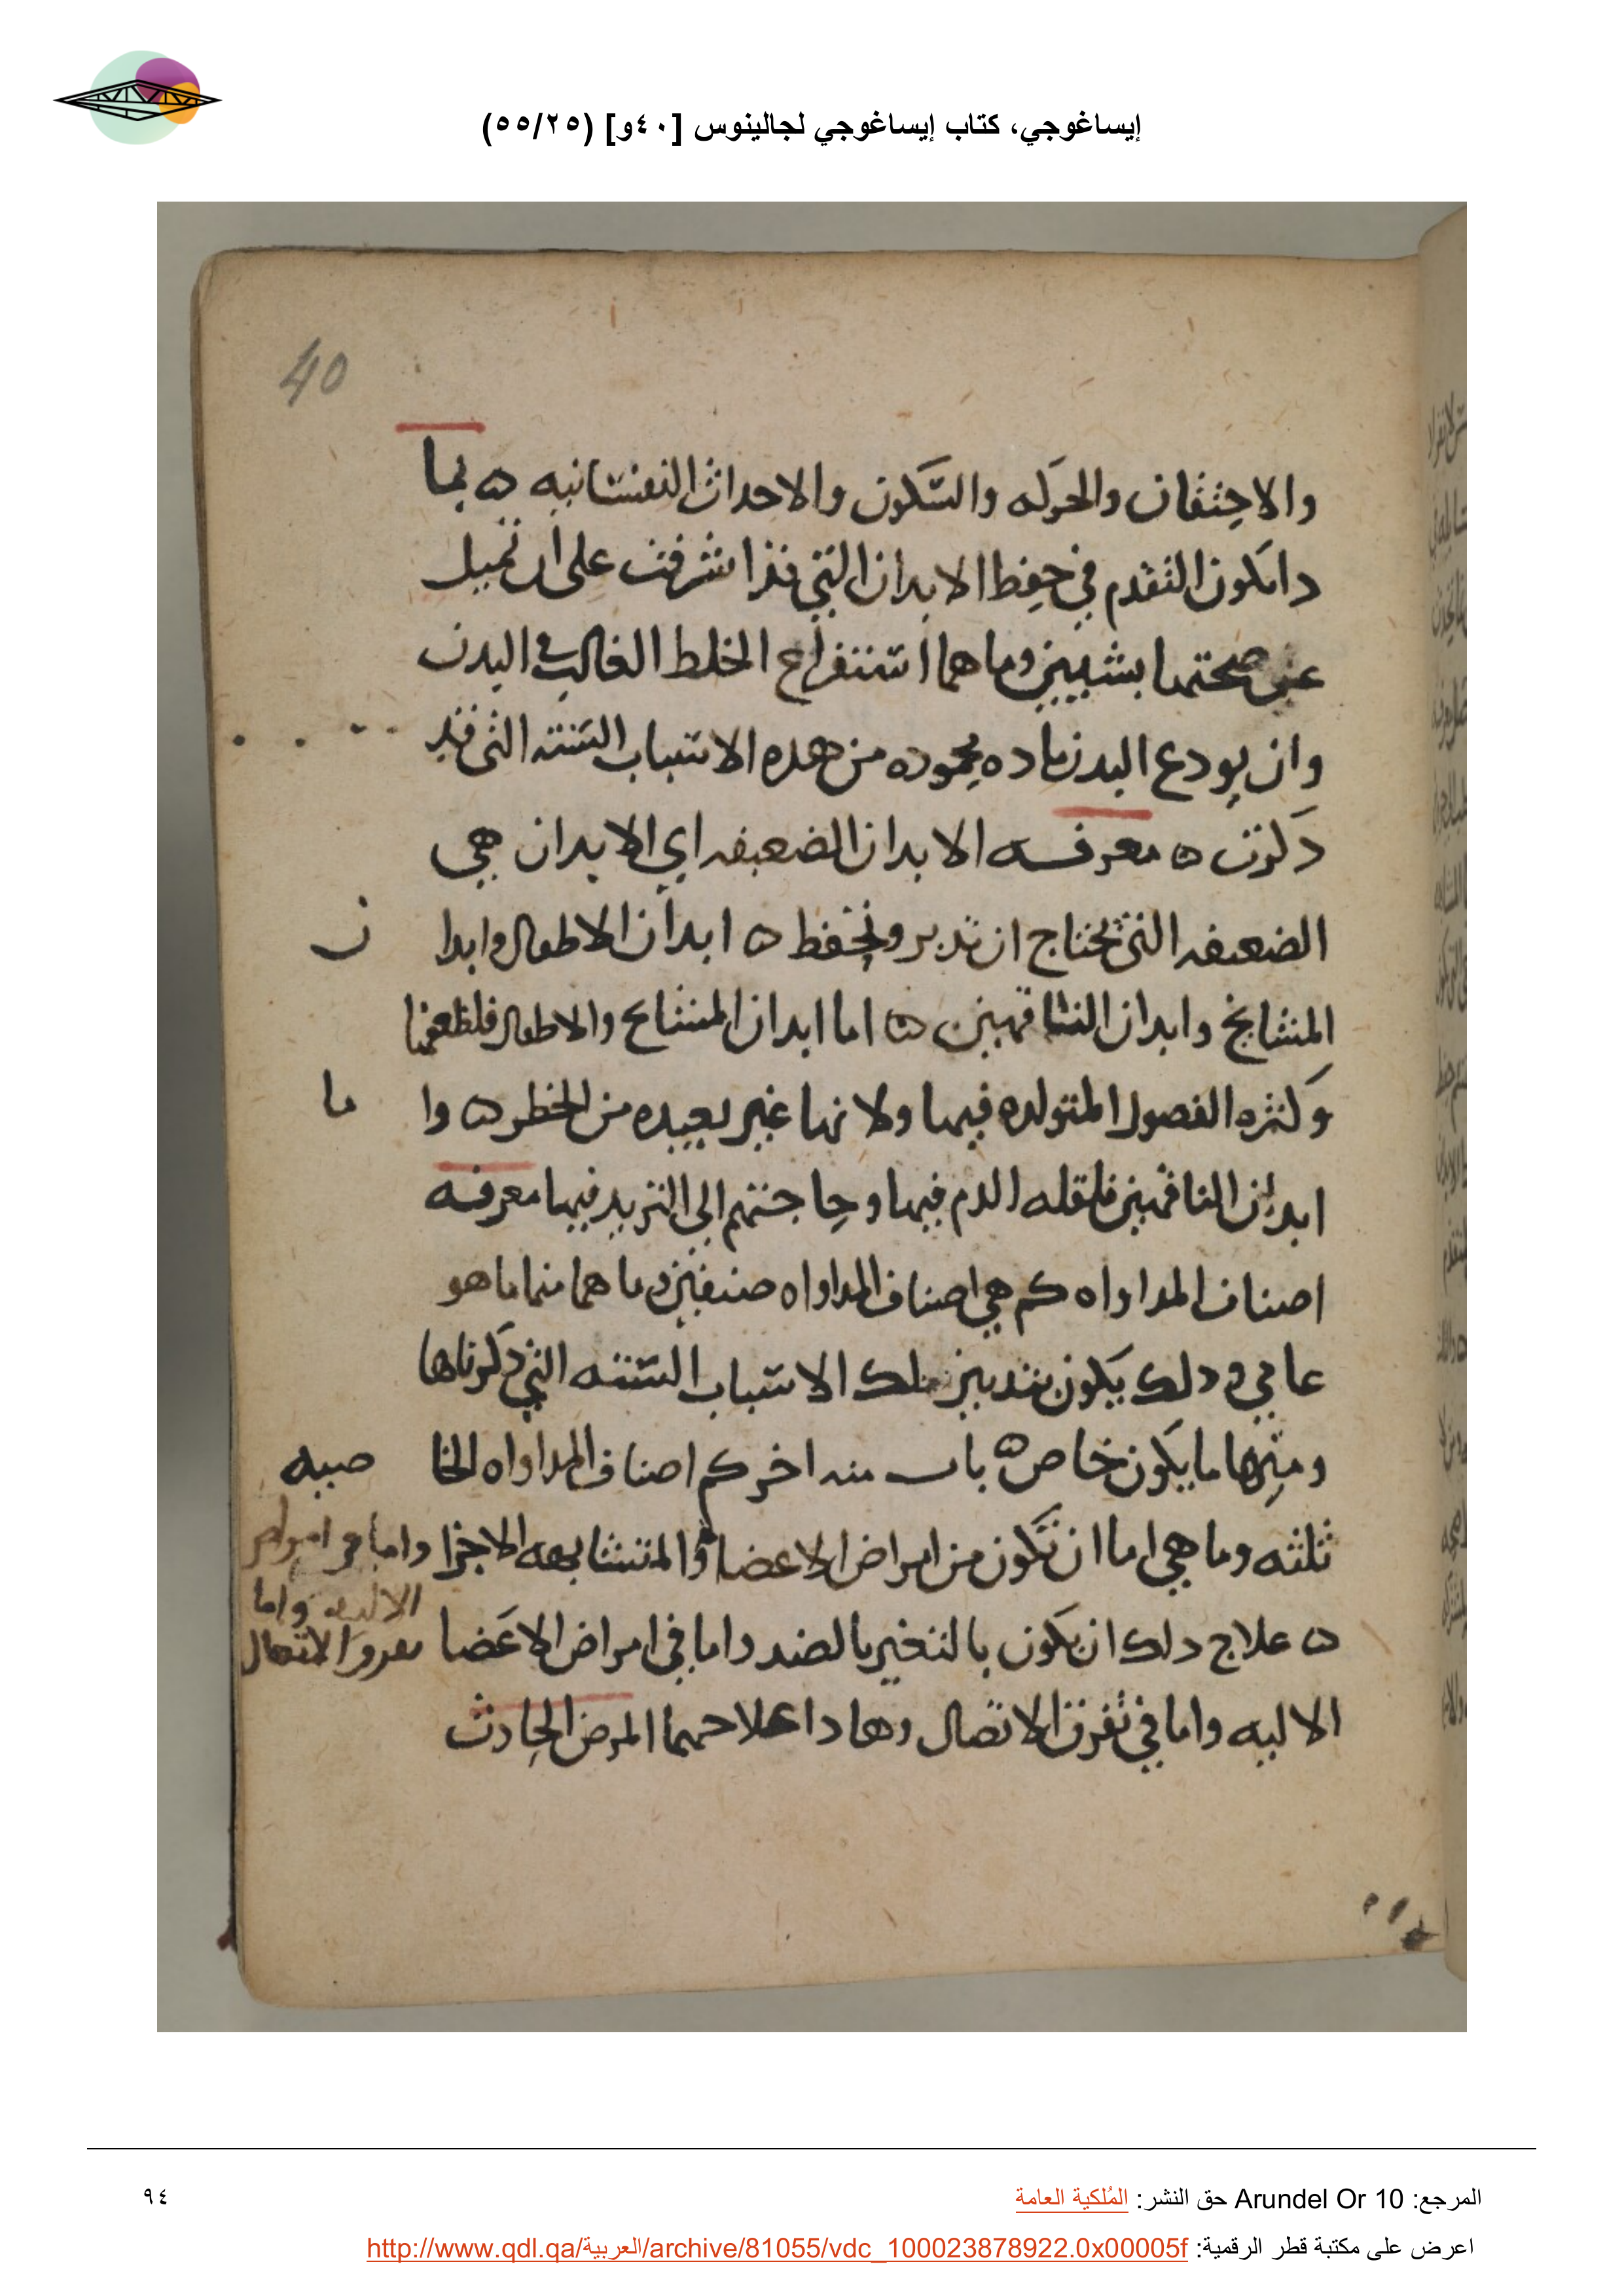 إيساغوجي، كتاب إيساغوجي لجالينوس [٤٠و] (٥٥/٢٥)
40
والاحتقان والحركه والسكون والاحداث النفسانيه ٥ بما
دا يكون التقدم في حفظ الابدان التي قد اشرفت على ان تميل
عن صحتها بشيين وما هما استفراغ الخلط الغالب في البدن
وان يودع البدن ماده محموده من هده الاسباب السته التي قد
دكرت ٥ معرفه الابدان الضعيفه اي الابدان هي
الضعيفه التي يحتاج ان تدبر وتحفظ ٥ ابدان الاطفال وابدا ن
المشايخ وابدان الناقهين ٥ اما ابدان المشايخ والاطفال فلضعفها
وكثره الفصول المتولده فيها ولانها غير بعيده من الخطر ٥ وا ما
ابدان الناقهين فلقله الدم فيها وحاجتهم الى التزيد فيها معرفه
اصناف المداواه كم هي اصناف المداواه صنفين وما هما منها ما هو
عامي و دلك يكون بتدبير تلك الاسباب السته التي دكرناها
ومنها ما يكون خاص ٥ باب منه اخر كم اصناف المداواه الخا صيه
ثلثه وما هي اما ان تكون من امراض الاعضا المتشابهه الاجزا واما في امراض
الاليه واما
٥ علاج دلك ان يكون بالتغيير بالضد واما في امراض الاعضا تفرق الاتصال
الاليه واما في تفرق الاتصال وهادا علاجهما المرض الحادث
المرجع: Arundel Or 10 حق النشر: المُلكية العامة
٩٤
اعرض على مكتبة قطر الرقمية: http://www.qdl.qa/العربية/archive/81055/vdc_100023878922.0x00005f